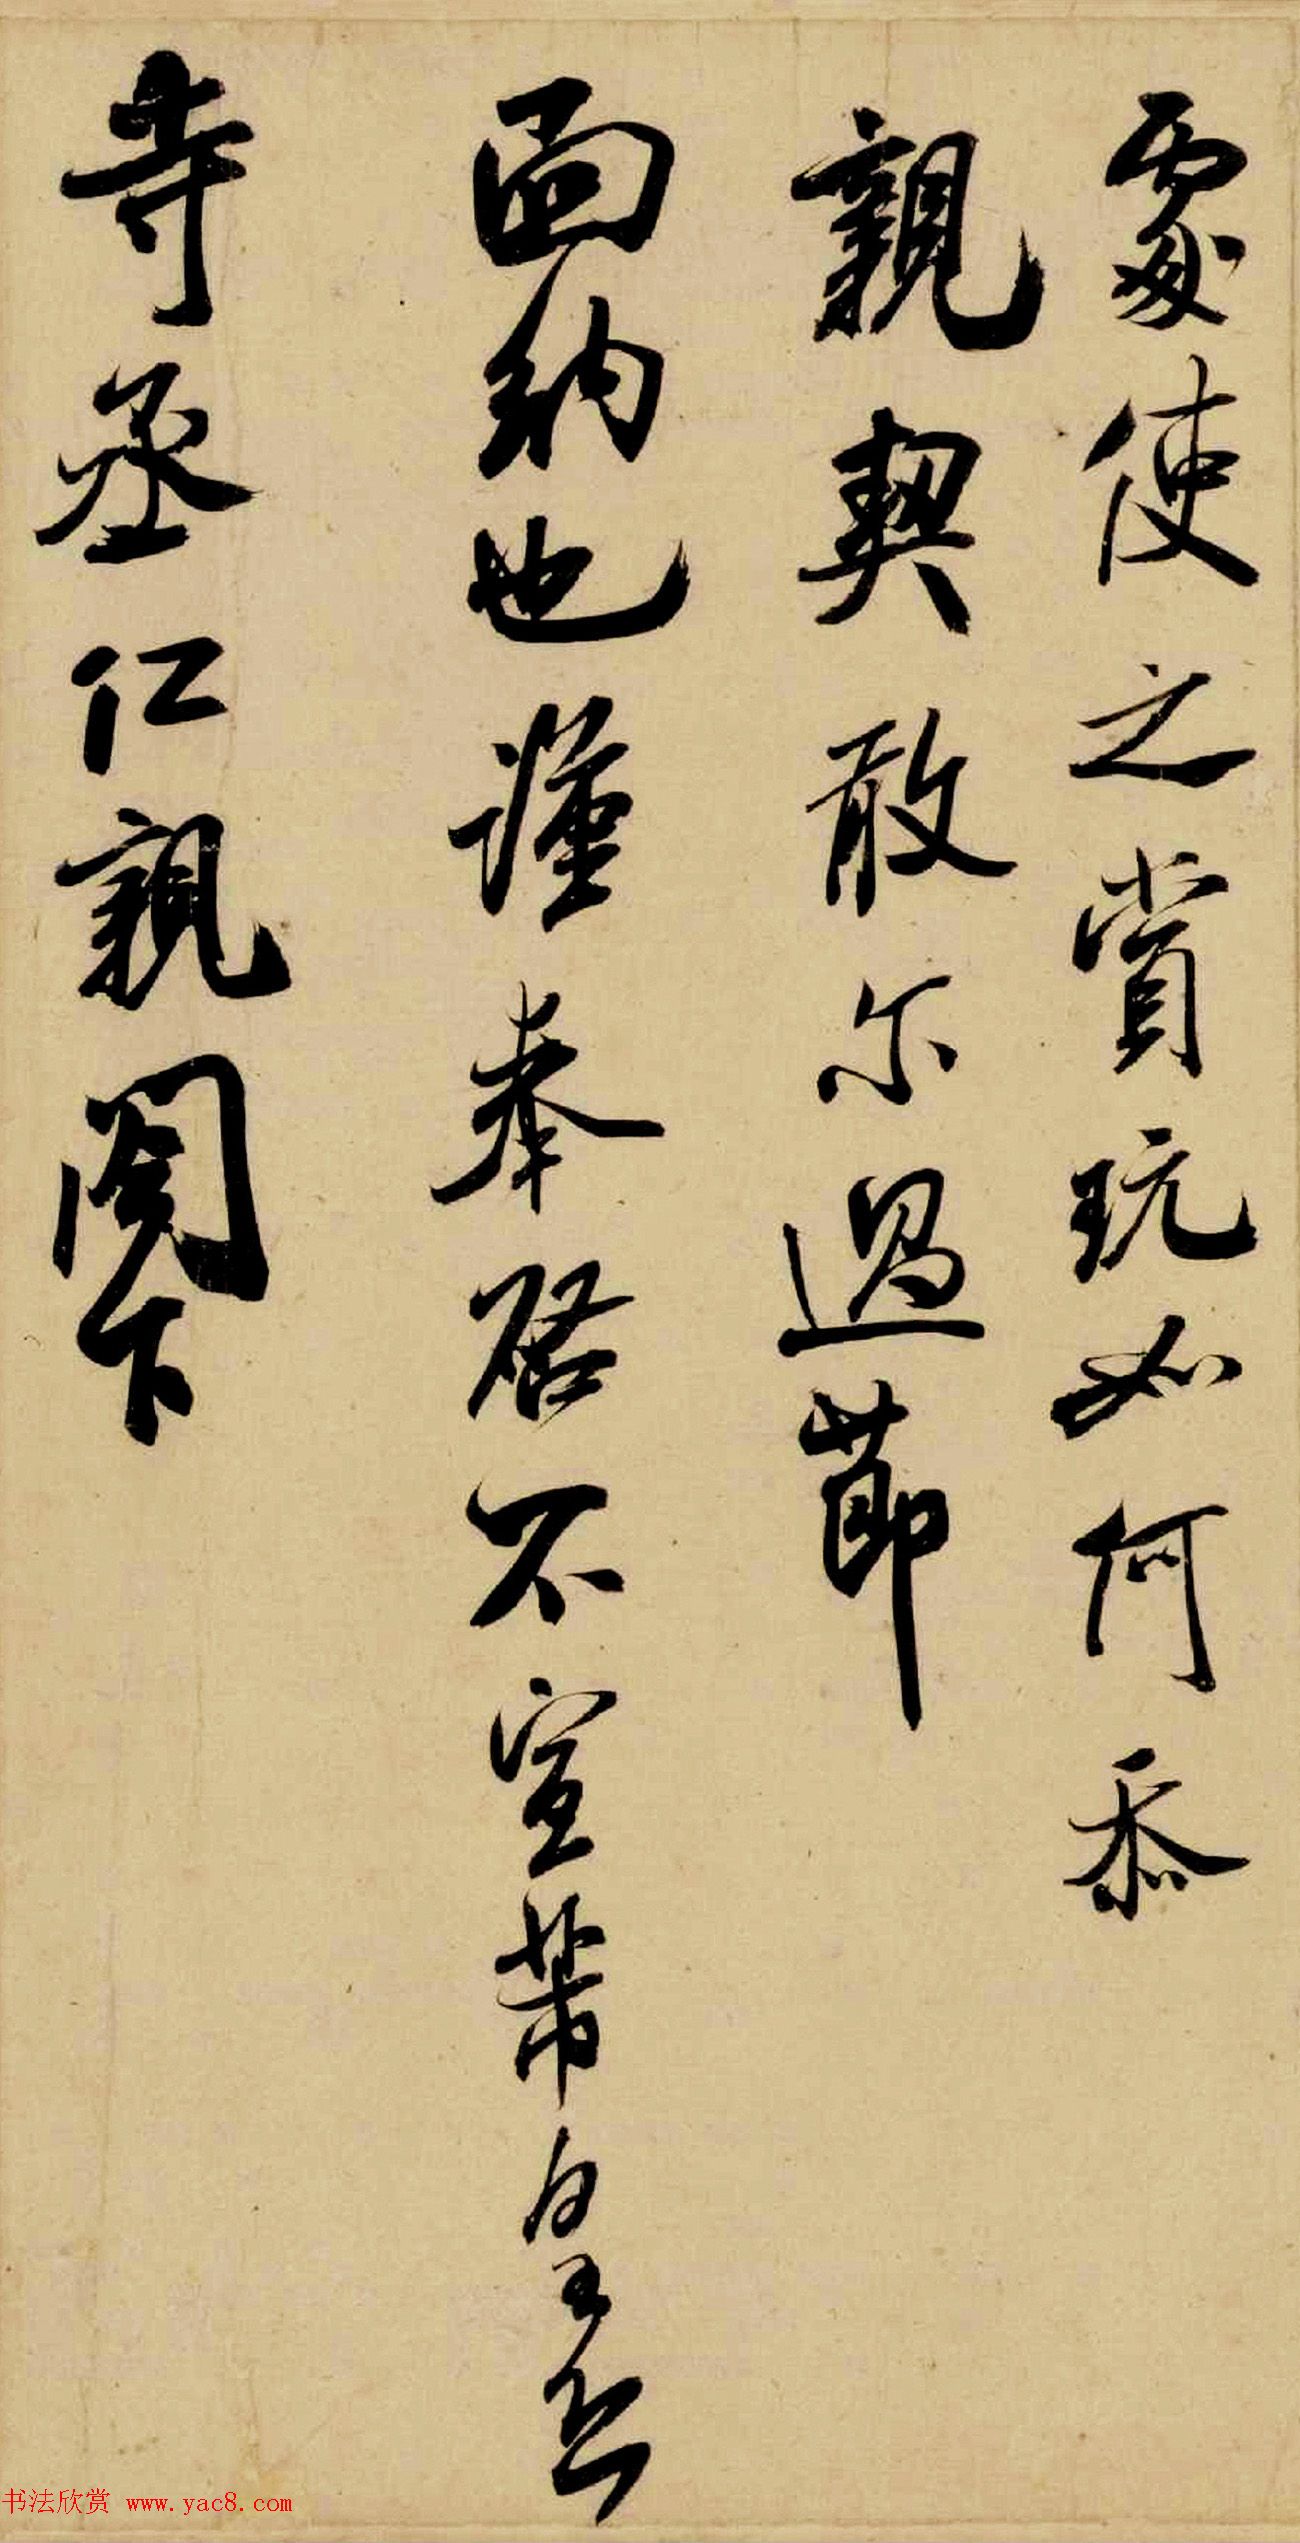 處使之賞玩如何忝
親契敢尔過莭
面納也謹奉啓不宣芾皇恐
寺丞仁親閣下
书法欣赏 www.yac8.com